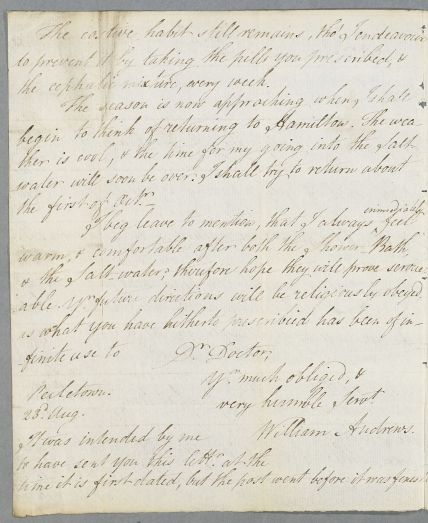 The costive habit still remains, tho' I endeavour
to prevent it by taking the pills you prescribed, &
the cephalic mixture, every week.
The season is now approaching when, I shall
begin to think of returning to Hamilton. The wea-
ther is cool, & the time for my going into the salt
water will soon be over: I shall try to return about
the first of Octr.
I beg leave to mention, that I always immediately feel
warm, & comfortable after both the Shower Bath
& the salt-water; therefore hope they will prove servic-
able. Yr. future directions will be religiously obeyed
as what you have hitherto prescribed has been of in-
finite use to Dr. Doctor,
Yr. much obliged, &
very humble Servt
William Andrews.
28. Aug.
It was intended by me
to have sent you this lettr. at the
time it is first dated, but the post went before it was